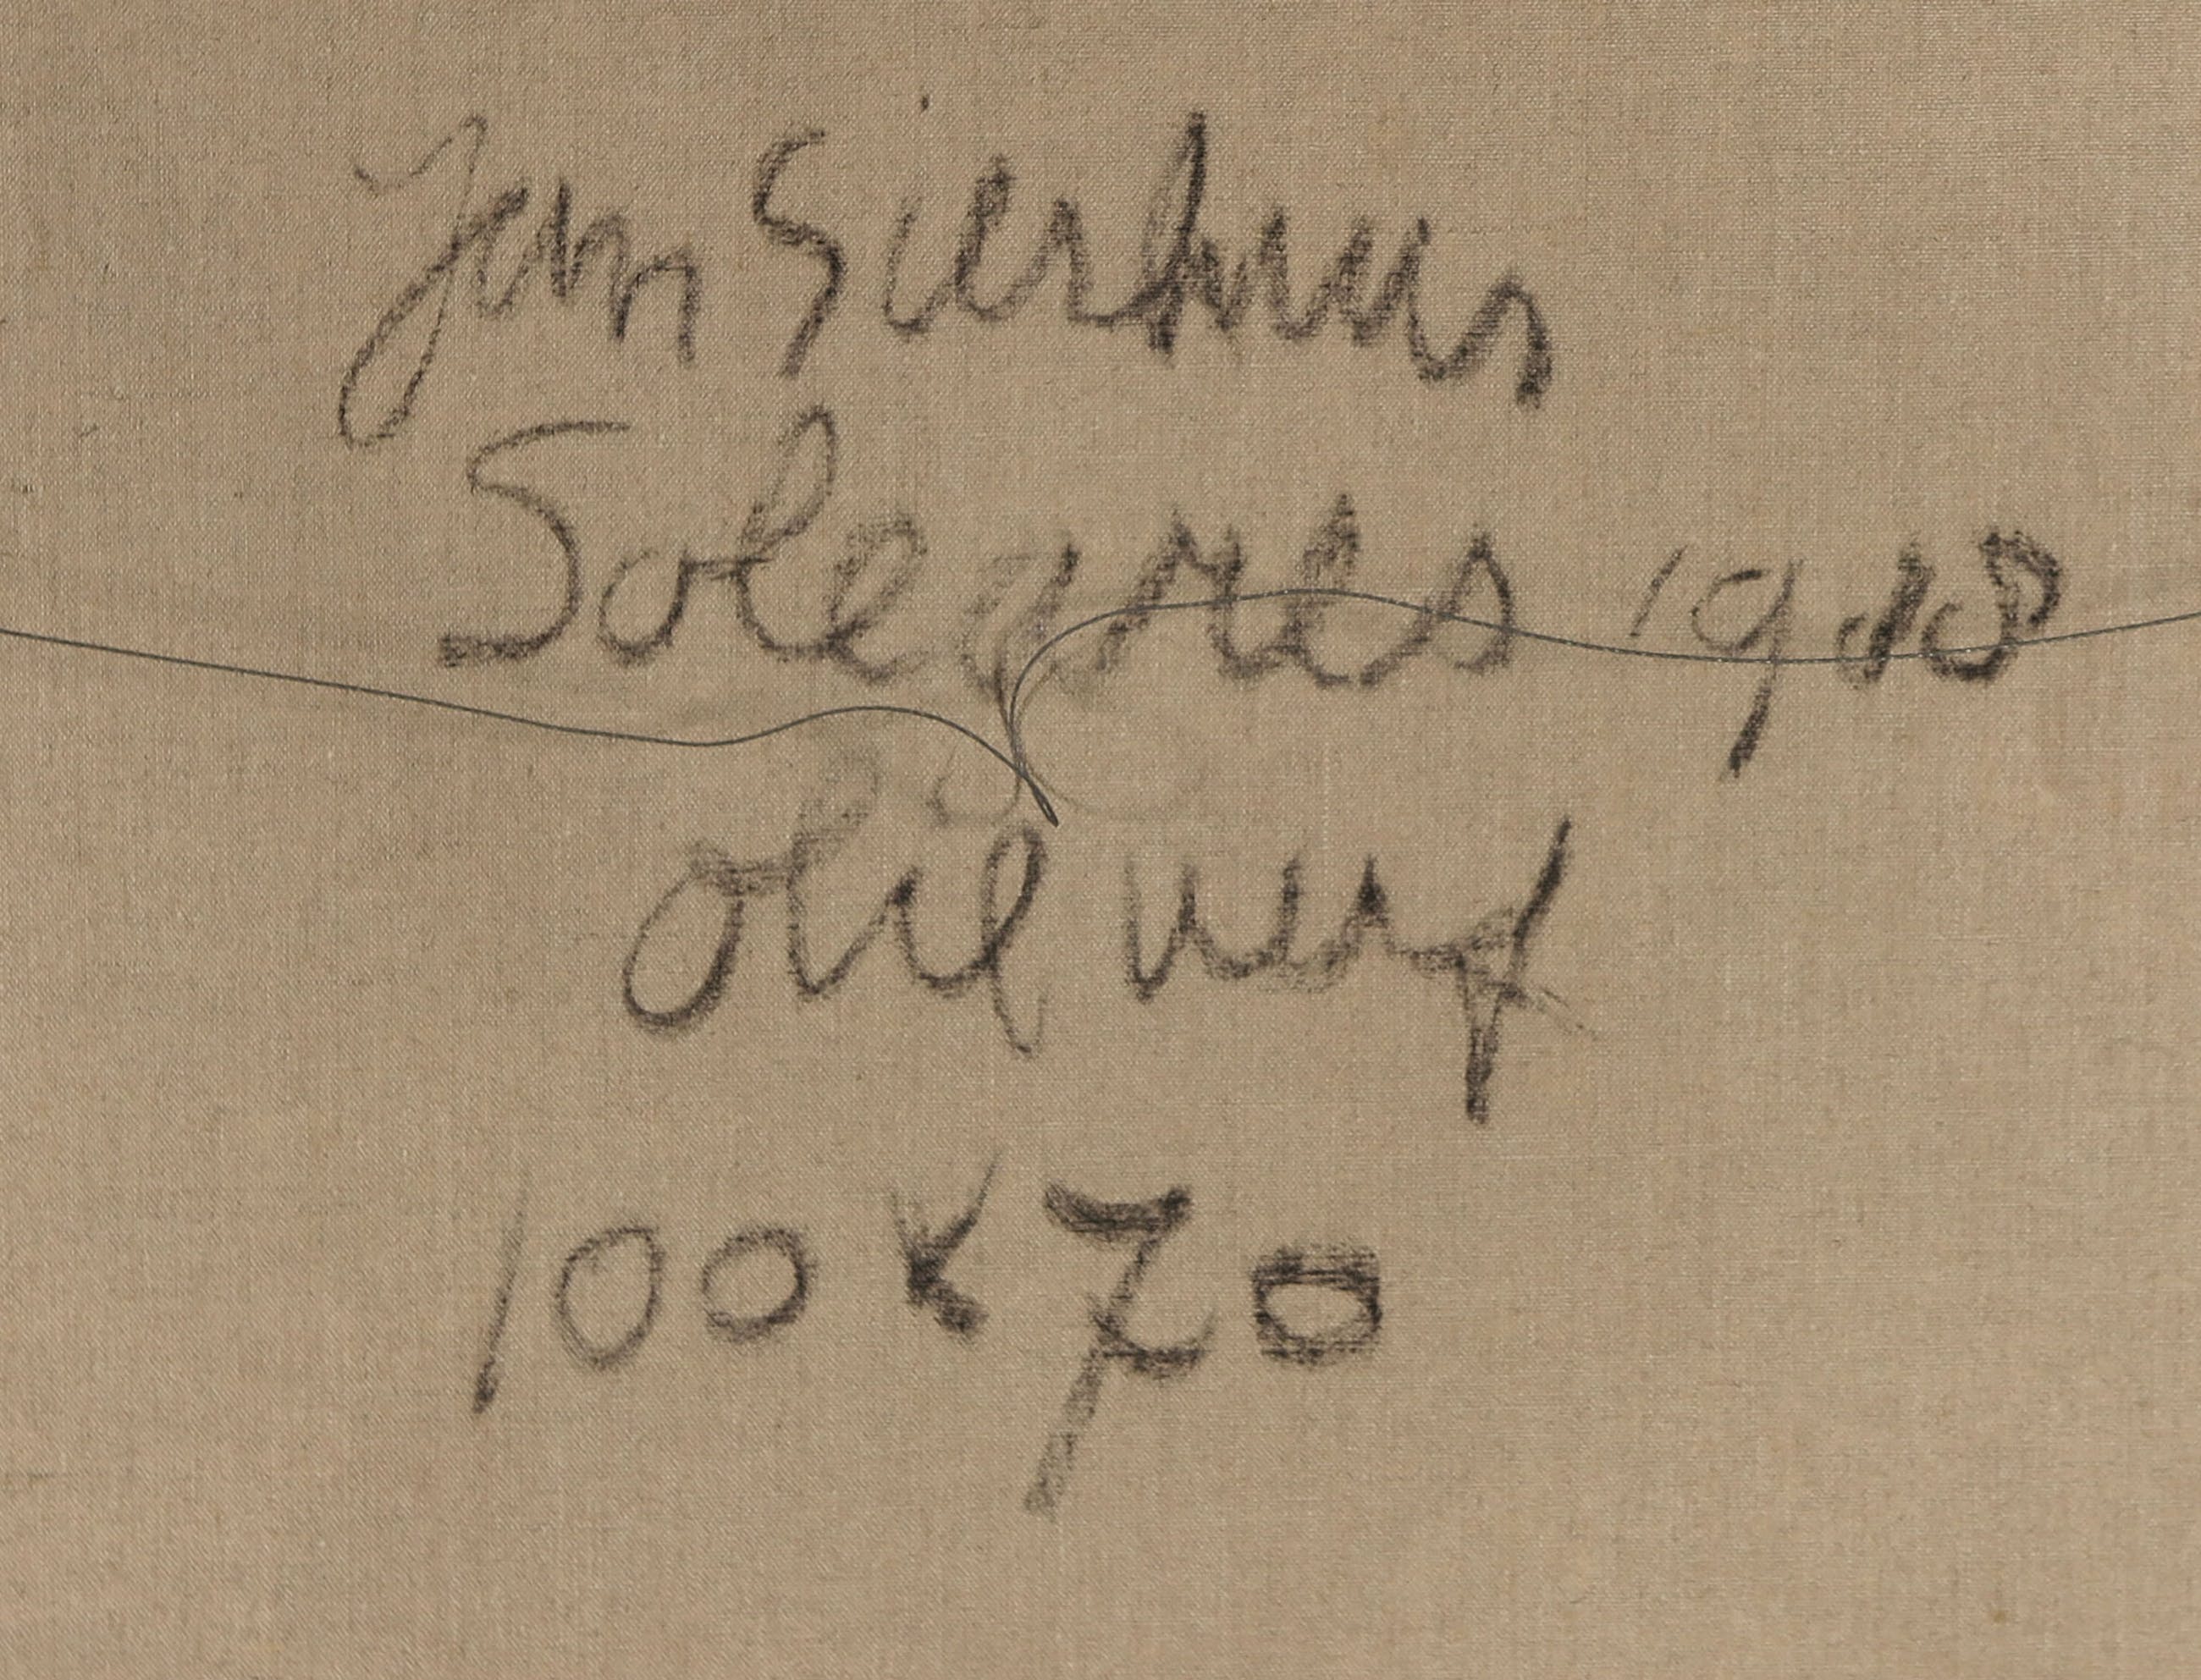 Jan Sierhuis
Soleares 1988
olie verf
100 x 70